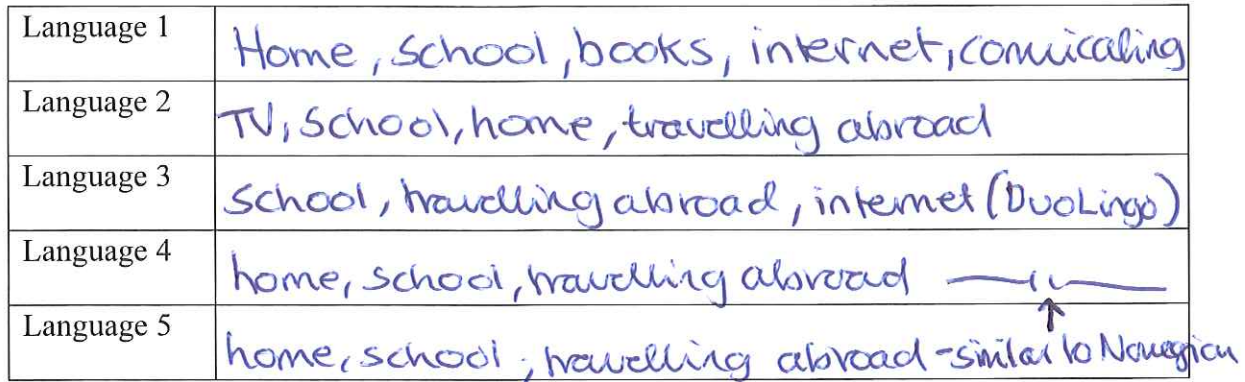 Language 1 Home, school, books, internet, comuicaling
Language 2 TV, school, home, travelling abroad
Language 3 school, travelling abroad, internet (DuoLingo)
Language 4 home, school, travelling abroad — 〃 —
Language 5 home, school, travelling abroad - similar to Norwegian